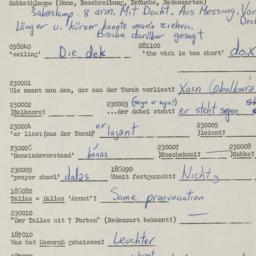 Sabbathlampe (Name, Beschreibung, Bräuche, Redensarten)
Sabaslamp. 8 arm. Mit Docht. Aus Messing. Von
Länger u. kürzer konnte man's ziehen.
Broche darüber gesagt
058040 081100
'ceiling' Die dek 'the wick is too short' do.x
230001
Wie nennt man den, der aus der Torah vorliest? Xasn
230002 230003
Balkore? ...der dabei steht: er steht segen
230004 230005
'er liest (aus der Torah)' er leient?
230006 230007 230008
'Gemeindevorstand' Roschekool? Gabbe?
230009 184090
'prayer shawl' dalas Womit festgemacht? Nichts
184080
Talles = Dalles 'Armut'? Same pronunciation
230010
"Der Talles mit 7 Farben" (Redensart bekannt?)
187010
Was hat Menorah geheissen? Leuchter